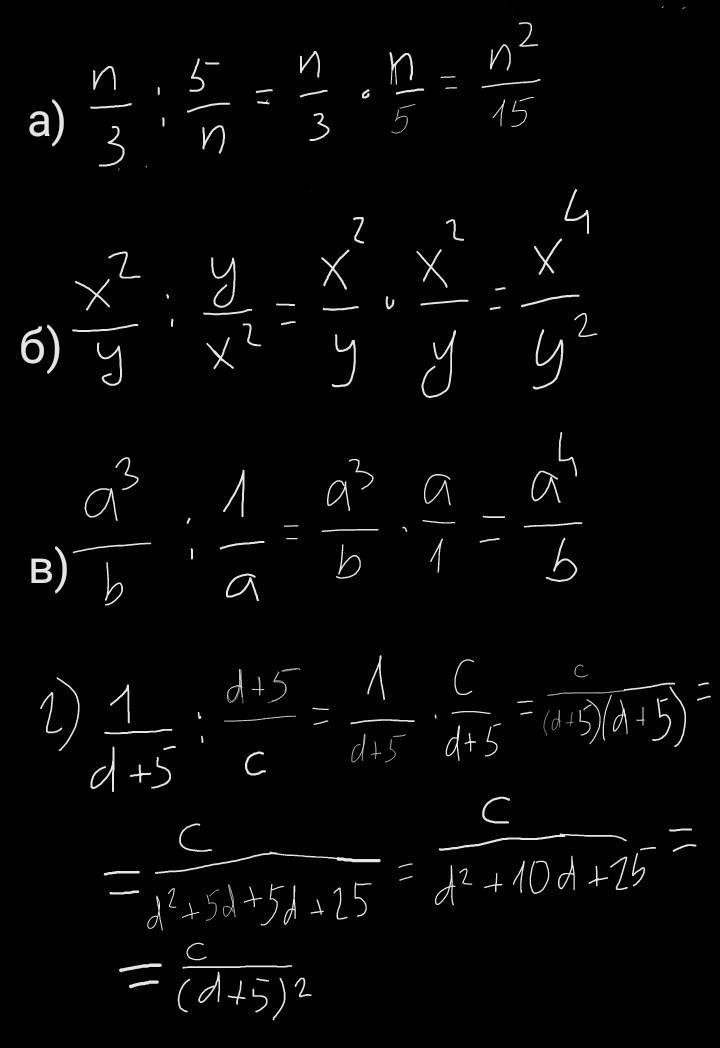 а) n/3 : 5/n = n/3 · n/5 = n²/15
б) x²/y : y/x² = x²/y · x²/y = x⁴/y²
в) a³/b : 1/a = a³/b · a/1 = a⁴/b
г) 1/(d+5) : (d+5)/c = 1/(d+5) · c/(d+5) = c/((d+5)(d+5)) =
= c/(d²+5d+5d+25) = c/(d²+10d+25) =
= c/(d+5)²